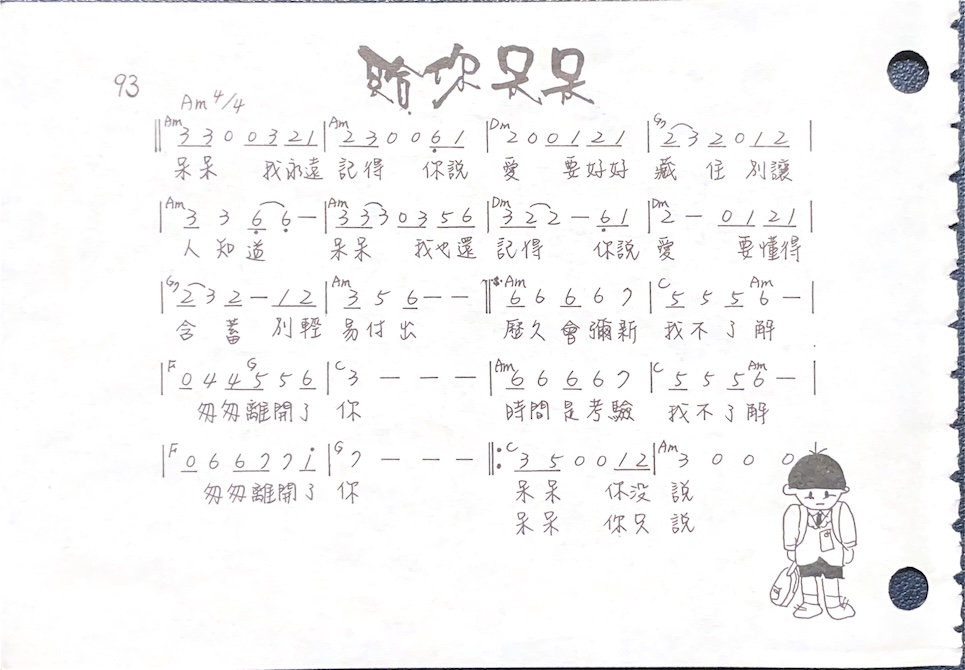 給你呆呆
93
Am 4/4
‖Am 3 3 0 0 3 2 1 |Am 2 3 0 0 6 1 |Dm 2 0 0 1 2 1 |G7 2 3 2 0 1 2 |
呆呆 我永遠 記得 你說 愛 要好好 藏 住 別讓
|Am 3 3 6 6 — |Am 3 3 3 0 3 5 6 |Dm 3 2 2 — 6 1 |Dm 2 — 0 1 2 1 |
人 知 道 呆呆 我也還 記得 你說 愛 要懂得
|G7 2 3 2 — 1 2 |Am 3 5 6 — — ‖Am 6 6 6 6 7 |C 5 5 5 Am 6 — |
含 蓄 別輕 易付出 歷久會彌新 我不了解
|F 0 4 4 G 5 5 6 |C 3 — — — |Am 6 6 6 6 7 |C 5 5 5 Am 6 — |
匆匆離開了 你 時間是考驗 我不了解
|F 0 6 6 7 7 i |G 7 — — — ‖: C 3 5 0 0 1 2 |Am 3 0 0 0
匆匆離開了 你 呆呆 你没 說
呆呆 你只 說